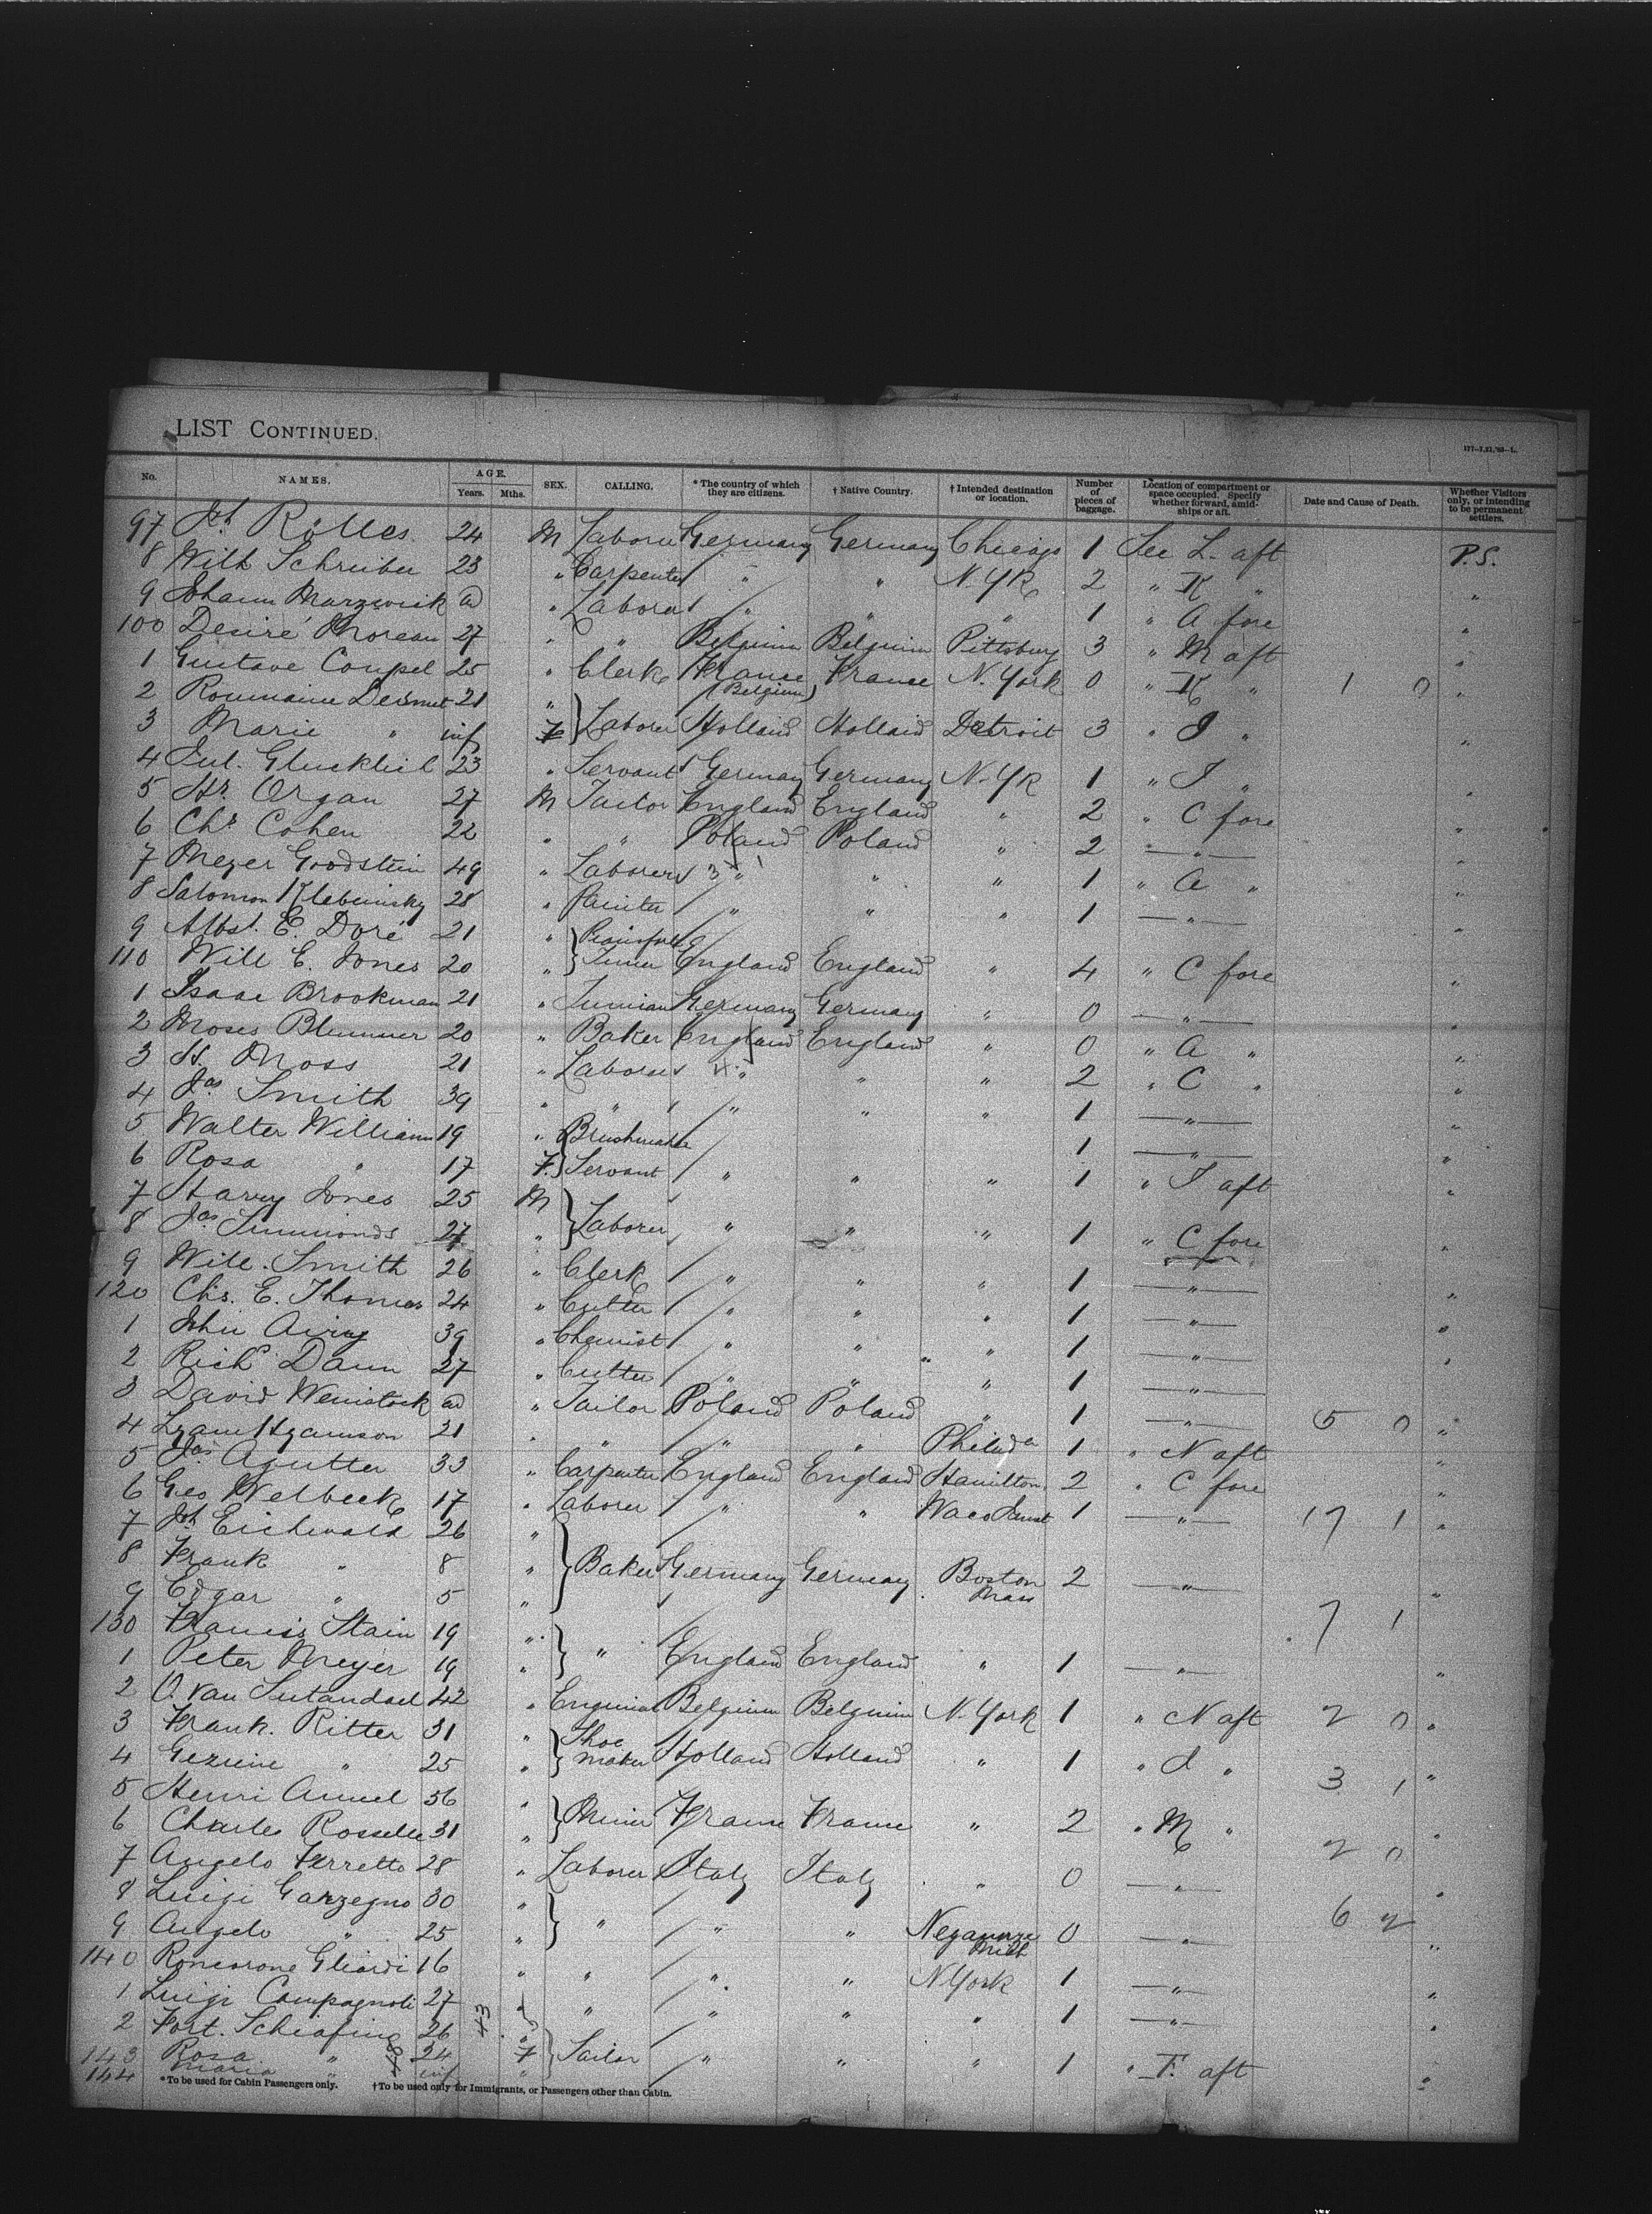 LIST CONTINUED.
177-7,21,'93-L.
No. NAMES. AGE. Years. Mths. SEX. CALLING. * The country of which they are citizens. † Native Country. † Intended destination or location. Number of pieces of baggage. Location of compartment or space occupied. Specify whether forward, amidships or aft. Date and Cause of Death. Whether Visitors only, or intending to be permanent settlers.
97 Jh Rölles 24 M Laborer Germany Germany Chicago 1 Sec L. aft P.S.
8 Wilh Schreiber 23 " Carpenter " " N. Yk 2 " K " "
9 Johann ad " Laborer " " " 1 " A fore "
100 Desiré Moreau 27 " " Belgium Belgium Pittsburg 3 " M aft "
1 Gustave Coupel 25 " Clerk France France N. York 0 " K " 1 0 "
2 Roumaine Desmet 21 " (Belgium)
3 Marie " inf F } Laborer Holland Holland Detroit 3 " I " "
4 Jul. Glucklich 23 " Servant Germany Germany N. Yk 1 " I " "
5 Hr Organ 27 M Tailor England England " 2 " C fore "
6 Chs Cohen 22 " " Poland Poland " 2 — " — "
7 Meyer Goodstein 49 " Laborer 3 " " " 1 " A " "
8 Salomon Klebeinsky 28 " Painter " " " 1 — " — "
9 Albt. E. Doré 21 " } Pianoforte
110 Will E. Jones 20 " } Tuner England England " 4 " C fore "
1 Isaac Brookman 21 " Germany Germany " 0 — " — "
2 Moses Blummer 20 " Baker England England " 0 " A " "
3 H. Moss 21 " Laborer 4 " " " 2 " C " "
4 Jas Smith 39 " " " " " 1 — " — "
5 Walter William 19 " } Brushmaker 1 — " — "
6 Rosa " 17 F } Servant " " " 1 " I aft "
7 Harry Jones 25 M
8 Jas Simmonds 27 " } Laborer " " " 1 " C fore "
9 Will. Smith 26 " Clerk " " " 1 — " — "
120 Chs. E. Thomas 24 " Cutter " " " 1 — " — "
1 John Airey 39 " Chemist " " " 1 — " — "
2 Richd Dann 27 " Cutter " " " 1 — " — "
3 David Weinstock ad " Tailor Poland Poland " 1 — " — 5 0 "
4 21 " " " " Philada 1 " N aft "
5 Jas Agutter 33 " Carpenter England England Hamilton 2 " C fore "
6 Geo Welbeck 17 " Laborer " " Waco 1 — " — 17 1 "
7 Jh Eichwald 26 "
8 Frank " 8 " } Baker Germany Germany Boston Mass 2 — " — "
9 Edgar " 5 " 7 1
130 Francis Stain 19 "
1 Peter Meyer 19 " } " England England " 1 — " — "
2 O. van 42 " Engineer Belgium Belgium N. York 1 " N aft 2 0 "
3 Frank. Ritter 31 " } Shoe
4 " 25 " } maker Holland Holland " 1 " I " 3 1 "
5 Henri 56 "
6 Charles Rosselle 31 " } Miner France France " 2 " M " "
7 Angelo Ferretto 28 " Laborer Italy Italy " 0 — " — 2 0 "
8 Luigi Garzegno 30 "
9 Angelo " 25 " } " " " Negaunee Mich 0 — " — 6 2 "
140 Gliardi 16 " " " " N York 1 — " — "
1 Luigi Campagnoli 27 " " " " " 1 — " — "
2 Fort. Schiafino 26 "
143 Rosa " 24 F } Tailor " " " 1 " F. aft "
144 Maria " inf "
*To be used for Cabin Passengers only. †To be used only for Immigrants, or Passengers other than Cabin.